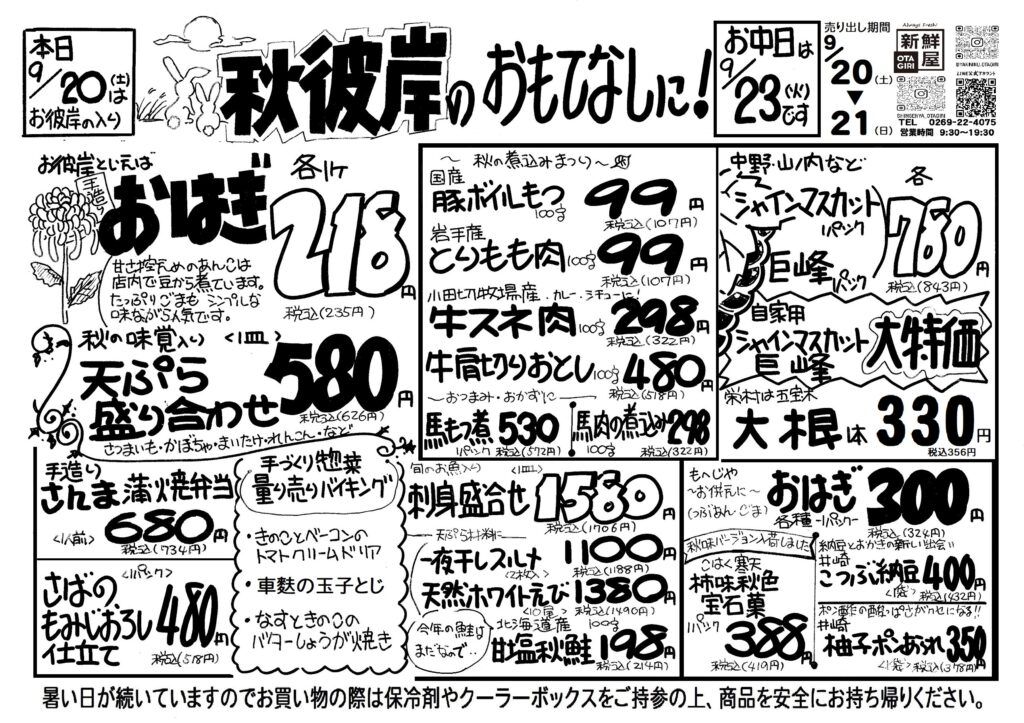 本日
9/20(土)は
お彼岸の入り
秋彼岸の おもてなしに!
お中日は
9/23(火)です
売り出し期間
9/20(土)
▼
21(日)
Always Fresh!
新鮮屋
OTAGIRI
LINE公式アカウント
TEL 0269-22-4075
営業時間 9:30~19:30
お彼岸といえば
手造り
おはぎ
各1ヶ
218円
税込(235円)
甘さ控えめのあんこは
店内で豆から煮ています。
たっぷりごまも シンプルな
味ながら人気です。
秋の味覚入り <1皿>
天ぷら
盛り合わせ
580円
税込(626円)
さつまいも・かぼちゃ・まいたけ・れんこん・など
~ 秋の煮込みまつり ~
国産
豚ボイルもつ 100g 99円
税込(107円)
岩手産
とりもも肉 100g 99円
税込(107円)
小田切牧場産 カレー、シチューに!
牛スネ肉 100g 298円
税込(322円)
牛肩切りおとし 100g 480円
税込(518円)
~おつまみ・おかずに~
馬もつ煮 530円
1パック 税込(572円)
馬肉の煮込み 298円
100g 税込(322円)
中野・山ノ内など
シャインマスカット
1パック
巨峰
1パック
各
780円
税込(843円)
自家用
シャインマスカット
巨峰
大特価
栄村は五宝木
大根 1本 330円
税込356円
手造り
さんま蒲焼弁当
<1人前> 680円
税込(734円)
さばの
もみじおろし
仕立て
<1パック>
480円
税込(518円)
手づくり惣菜
量り売りバイキング
・きのことベーコンの
トマトクリームドリア
・車麩の玉子とじ
・なすときのこの
バターしょうが焼き
旬のお魚入り <1皿>
刺身盛合せ 1580円
税込(1706円)
天ぷら材料に
一夜干しスルメ 1100円
<2枚入> 税込(1188円)
天然ホワイトえび 1380円
<10尾> 税込(1490円)
今年の鮭は
まだなので…
北海道産 100g
甘塩秋鮭 198円
税込(214円)
もへじや
~お供えに~
(つぶあん ごま)
おはぎ
各種 1パック
300円
税込(324円)
秋味バージョン入荷しました
こはく寒天
柿味秋色
宝石菓
1パック 388円
税込(419円)
納豆とおかきの新しい出会い
井崎
こつぶ納豆 400円
<1袋> 税込(432円)
井崎
柚子ポンあられ 350円
<1袋> 税込(378円)
暑い日が続いていますのでお買い物の際は保冷剤やクーラーボックスをご持参の上、商品を安全にお持ち帰りください。